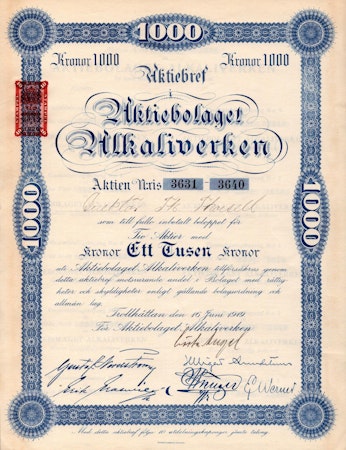 1000
Kronor 1000 Kronor 1000
Aktiebref
i
Aktiebolaget
Alkaliverken
Aktien N:ris 3631 - 3640
1000 1000
som till fullo inbetalt beloppet för
Tio Aktier med
Kronor Ett Tusen Kronor
uti Aktiebolaget Alkaliverken tillförsäkras genom
detta aktiebref motsvarande andel i Bolaget med rättig-
heter och skyldigheter enligt gällande bolagsordning och
allmän lag.
Trollhättan den 16 Juni 1919
För Aktiebolaget Alkaliverken
Gösta Angel
E Werner
Med detta aktiebref följa 10 utdelningskuponger jemte talong.
1000